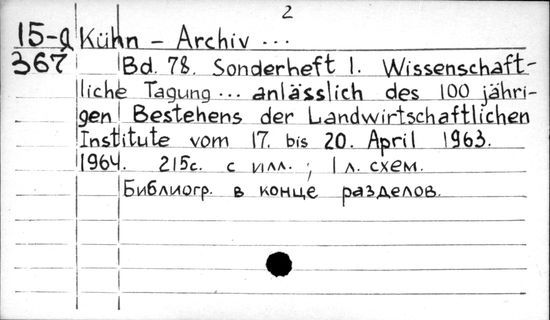 2
15-а Kühn - Archiv ...
367 Bd. 78. Sonderheft 1. Wissenschaft-
liche Tagung ... anlässlich des 100 jähri-
gen Bestehens der Landwirtschaftlichen
Institute vom 17. bis 20. April 1963.
1964. 215с. с илл. ; 1 л. схем.
Библиогр. в конце разделов.